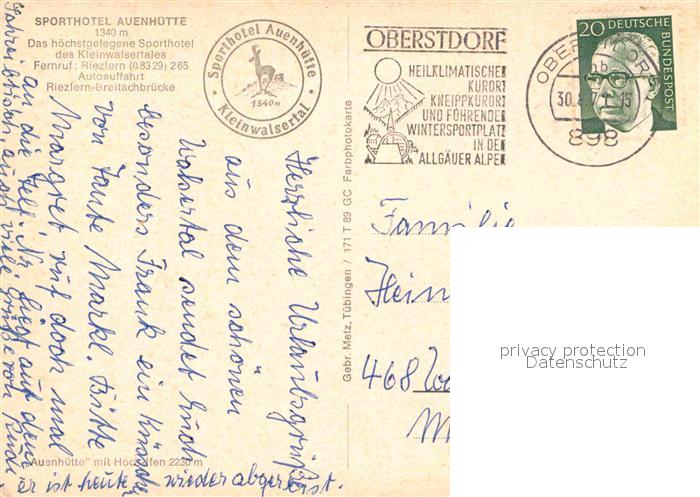 SPORTHOTEL AUENHÜTTE
1340 m
Das höchstgelegene Sporthotel
des Kleinwalsertales
Fernruf: Riezlern (0 83 29) 265
Autoauffahrt
Riezlern-Breitachbrücke
Sporthotel Auenhütte
1340m
Kleinwalsertal
OBERSTDORF
HEILKLIMATISCHER
KURORT
KNEIPPKURORT
UND FÜHRENDER
WINTERSPORTPLATZ
IN DEN
ALLGÄUER ALPEN
OBERSTDORF
bb
30.8.7 15
898
20 DEUTSCHE
BUNDESPOST
Herzliche Urlaubsgrüße
aus dem schönen
Walsertal sendet Euch
besonders Frank ein Küsschen
von Tante Markl. Bitte
Margret ruf doch mal
an die Telf. Nr. liegt auf dem
auch viele Grüße von Rudi
er ist heute wieder abgereist.
Familie
Hein
468
"Auenhütte" mit Hochifen 2230 m
Gebr. Metz, Tübingen / 171 T 89 GC Farbphotokarte
privacy protection
Datenschutz